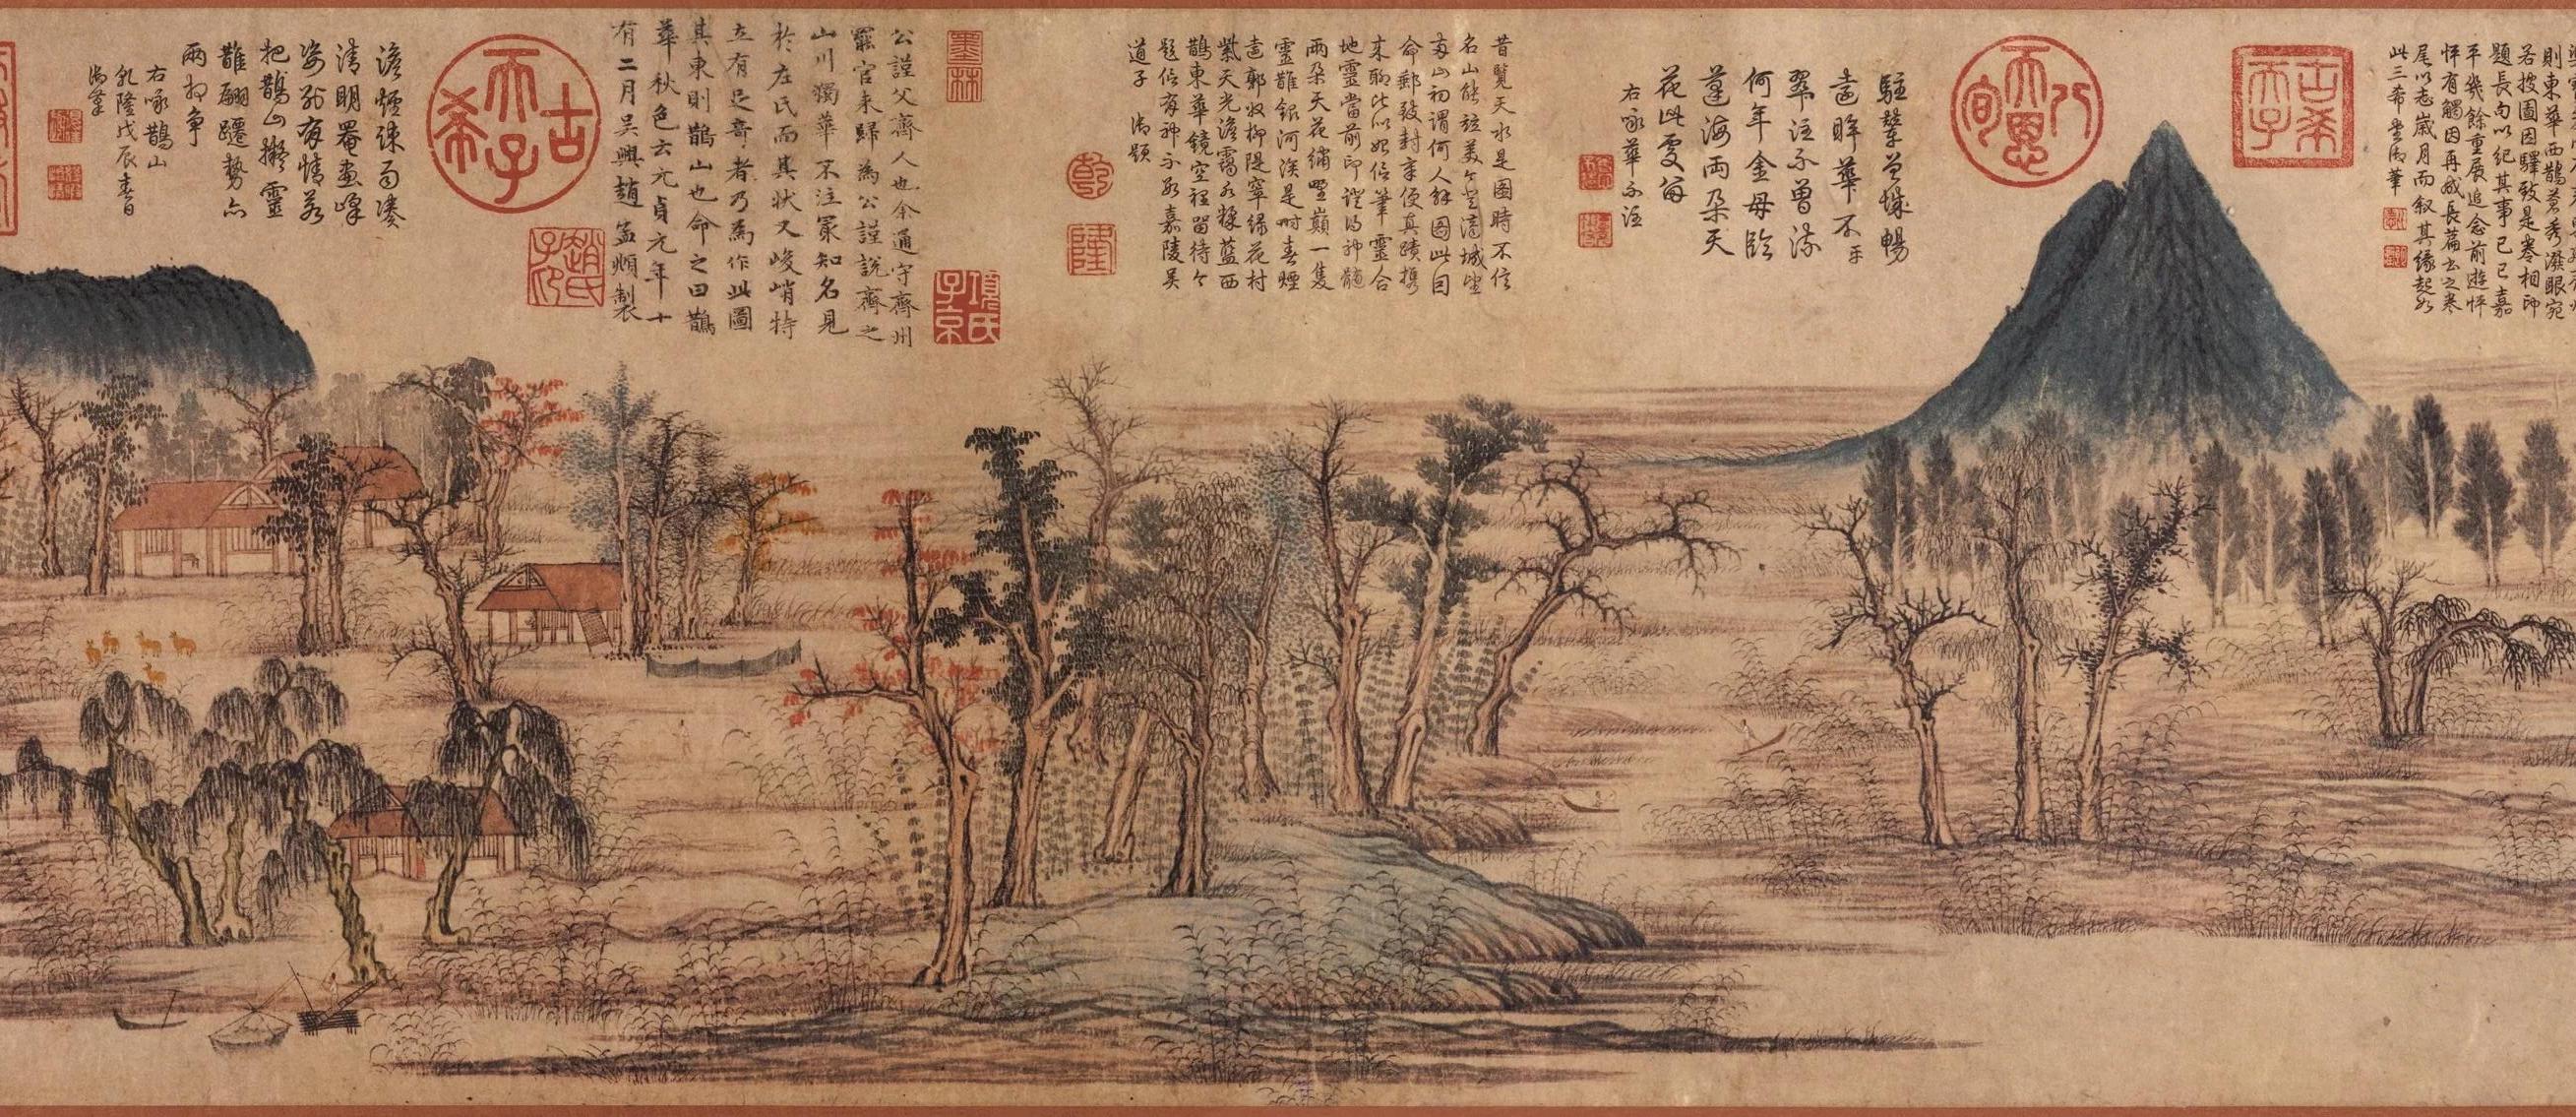 則東華西鵲蒼秀潑眼宛
若披圖因驛致是卷相印
題長句以紀其事己巳嘉
平幾餘重展追念前遊怦
怦有觸因再成長篇書之卷
尾以志歲月而敘其緣起如
此三希堂御筆
古希天子
八旬天恩
駐輦曾城暢
遠眸華不平
翠注不曾流
何年金母臨
蓬海兩朶天
花此處留
右咏華不注
昔覽天水是圖時不信
名山能並美今登濟城望
兩山初謂何人解圖此因
命郵致封章便真蹟携
來聊比似始信筆靈合
地靈當前印證得神髓
兩朶天花繡野巔一隻
靈鵲銀河涘是時春煙
遠郭收柳隄窣綠花村
紫天光澹靄水糅藍西
鵲東華鏡空裡留待今
題信有神不數嘉陵吳
道子 御題
乾
隆
墨林
項氏子京
公謹父齊人也余通守齊州
罷官來歸為公謹說齊之
山川獨華不注最知名見
於左氏而其狀又峻峭特
立有足奇者乃為作此圖
其東則鵲山也命之曰鵲
華秋色云元貞元年十
有二月吳興趙孟頫製
趙氏子昂
古希天子
澹煙踈雨湊
清明罨畫峰
姿別有情若
把鵲山擬靈
鵲翩躚勢亦
兩相爭
右咏鵲山
乾隆戊辰春日
御筆